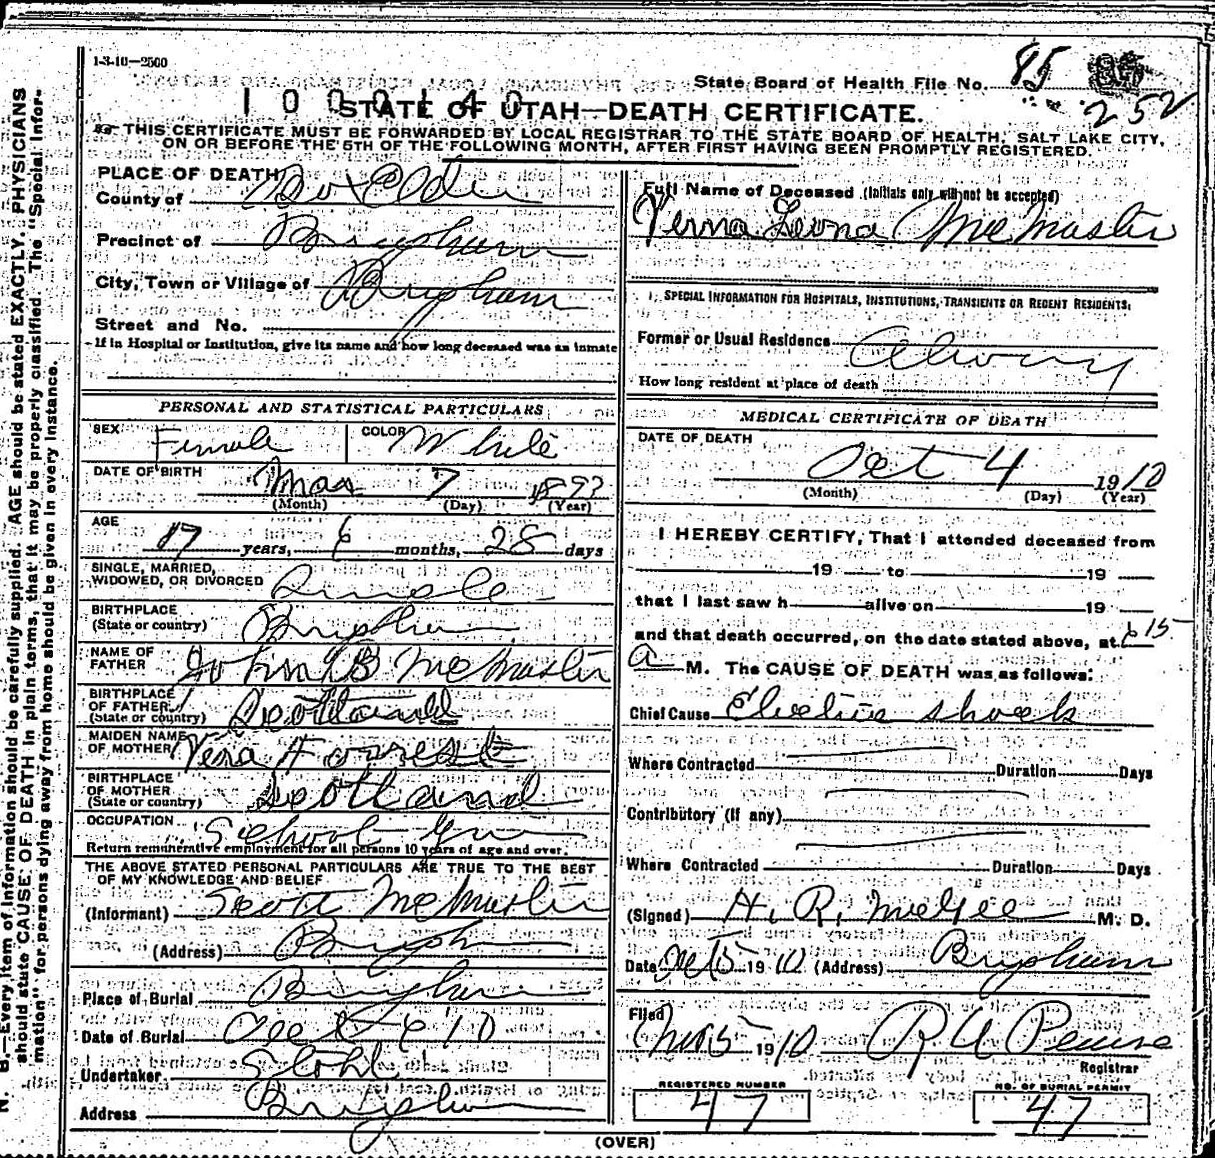 1-3-10—2500
State Board of Health File No. 85
252
1000140
STATE OF UTAH—DEATH CERTIFICATE.
THIS CERTIFICATE MUST BE FORWARDED BY LOCAL REGISTRAR TO THE STATE BOARD OF HEALTH, SALT LAKE CITY,
ON OR BEFORE THE 5TH OF THE FOLLOWING MONTH, AFTER FIRST HAVING BEEN PROMPTLY REGISTERED.
N. B.—Every item of information should be carefully supplied. AGE should be stated EXACTLY. PHYSICIANS
should state CAUSE OF DEATH in plain terms, that it may be properly classified. The "Special Infor-
mation" for persons dying away from home should be given in every instance.
PLACE OF DEATH
County of Box Elder
Precinct of Brigham
City, Town or Village of Brigham
Street and No.
If in Hospital or Institution, give its name and how long deceased was an inmate
PERSONAL AND STATISTICAL PARTICULARS
SEX Female COLOR White
DATE OF BIRTH Mar 7 1893
(Month) (Day) (Year)
AGE
17 years, 6 months, 28 days
SINGLE, MARRIED,
WIDOWED, OR DIVORCED Single
BIRTHPLACE
(State or country) Brigham
NAME OF
FATHER John B McMaster
BIRTHPLACE
OF FATHER
(State or country) Scotland
MAIDEN NAME
OF MOTHER Vera Forrest
BIRTHPLACE
OF MOTHER
(State or country) Scotland
OCCUPATION School Girl
Return remunerative employment for all persons 10 years of age and over.
THE ABOVE STATED PERSONAL PARTICULARS ARE TRUE TO THE BEST
OF MY KNOWLEDGE AND BELIEF
(Informant) Scott McMaster
(Address) Brigham
Place of Burial Brigham
Date of Burial Oct 6 '10
Undertaker Stohl
Address Brigham
Full Name of Deceased (Initials only will not be accepted)
Verna Leona McMaster
SPECIAL INFORMATION FOR HOSPITALS, INSTITUTIONS, TRANSIENTS OR RECENT RESIDENTS.
Former or Usual Residence Always
How long resident at place of death
MEDICAL CERTIFICATE OF DEATH
DATE OF DEATH
Oct 4 1910
(Month) (Day) (Year)
I HEREBY CERTIFY, That I attended deceased from
19 to 19
that I last saw h alive on 19
and that death occurred, on the date stated above, at 6 15
a M. The CAUSE OF DEATH was as follows:
Chief Cause Electric shock
Where Contracted Duration Days
Contributory (If any)
Where Contracted Duration Days
(Signed) H. R. McGee M. D.
Date Oct 5 1910 (Address) Brigham
Filed
Nov 5 1910 R A Pearse
Registrar
REGISTERED NUMBER
47
NO. OF BURIAL PERMIT
47
(OVER)